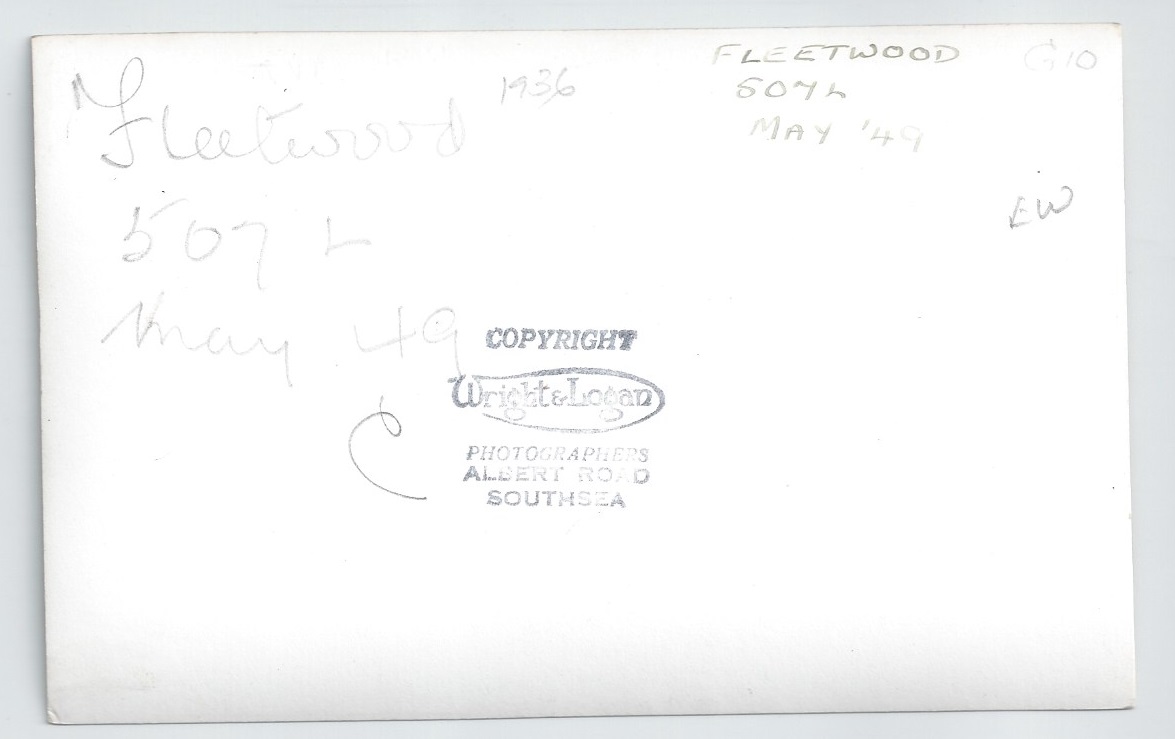 Fleetwood
507 L
May 49
1936
FLEETWOOD
507L
MAY '49
G10
EW
COPYRIGHT
Wright & Logan
PHOTOGRAPHERS
ALBERT ROAD
SOUTHSEA